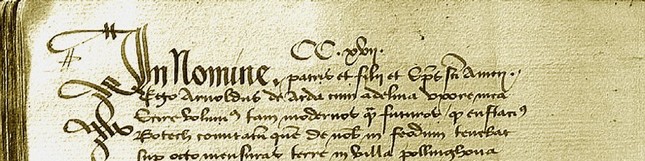 CC. xvii.
In Nomine, patris et filii et spūs scī Amen.
Ego Arnoldus de Arda cum adelina uxore mea
Scire volumꝰ tam modernos q̄ futuros / q̄ eustaciꝰ
comitatum quē de nob̄ in feodum tenebat
sup octo mensuras terre in villa pollinghoua